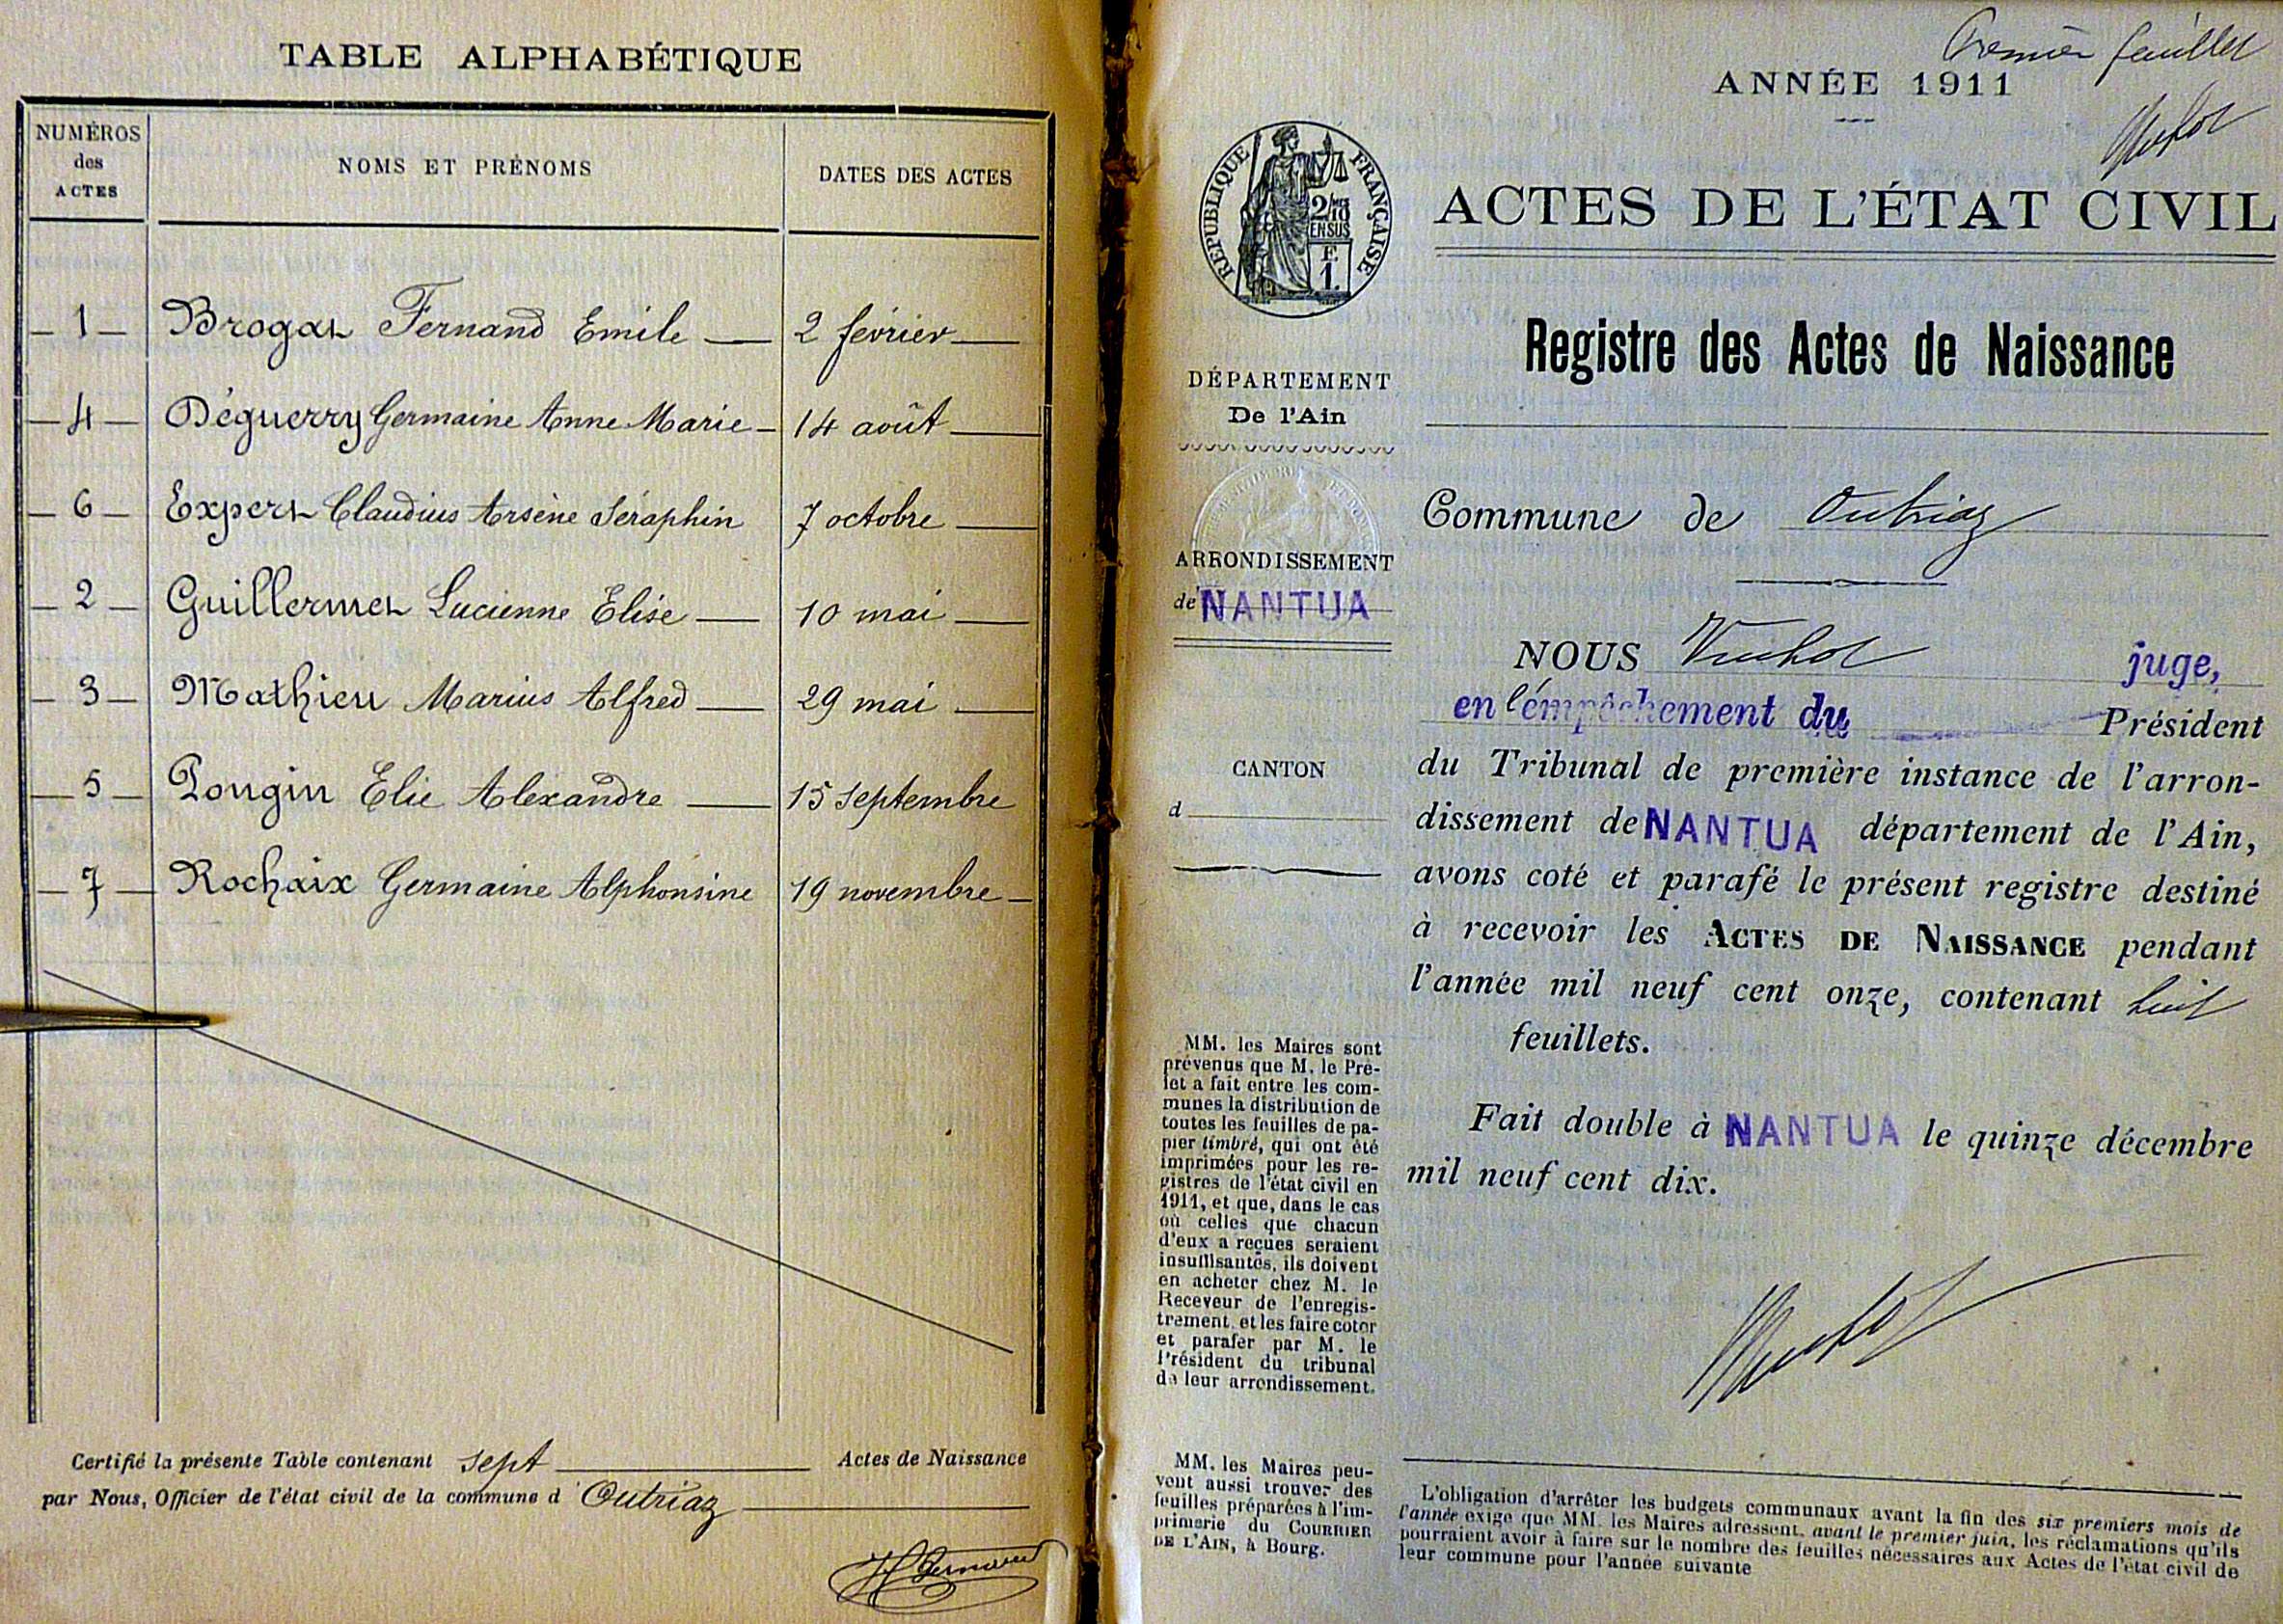 TABLE ALPHABÉTIQUE
NUMÉROS
des
ACTES
NOMS ET PRÉNOMS
DATES DES ACTES
— 1 — Brogat Fernand Emile — 2 février —
— 4 — Déguerry Germaine Anne Marie — 14 août —
— 6 — Expert Claudius Arsène Séraphin 7 octobre —
— 2 — Guillermet Lucienne Elise — 10 mai —
— 3 — Mathieu Marius Alfred — 29 mai —
— 5 — Pougin Elie Alexandre — 15 septembre
— 7 — Rochaix Germaine Alphonsine 19 novembre —
Certifié la présente Table contenant sept Actes de Naissance
par Nous, Officier de l'état civil de la commune d'Outriaz
Premier feuillet
ANNÉE 1911
RÉPUBLIQUE FRANÇAISE
2/10
EN SUS
F.
1.
ACTES DE L'ÉTAT CIVIL
Registre des Actes de Naissance
DÉPARTEMENT
De l'Ain
Commune de Outriaz
ARRONDISSEMENT
de NANTUA
CANTON
d
NOUS juge,
en l'empêchement du Président
du Tribunal de première instance de l'arron-
dissement de NANTUA département de l'Ain,
avons coté et parafé le présent registre destiné
à recevoir les ACTES DE NAISSANCE pendant
l'année mil neuf cent onze, contenant huit
feuillets.
Fait double à NANTUA le quinze décembre
mil neuf cent dix.
MM. les Maires sont
prévenus que M. le Pré-
fet a fait entre les com-
munes la distribution de
toutes les feuilles de pa-
pier timbré, qui ont été
imprimées pour les re-
gistres de l'état civil en
1911, et que, dans le cas
où celles que chacun
d'eux a reçues seraient
insuffisantes, ils doivent
en acheter chez M. le
Receveur de l'enregis-
trement, et les faire coter
et parafer par M. le
Président du tribunal
de leur arrondissement.
MM. les Maires peu-
vent aussi trouver des
feuilles préparées à l'im-
primerie du COURRIER
DE L'AIN, à Bourg.
L'obligation d'arrêter les budgets communaux avant la fin des six premiers mois de
l'année exige que MM. les Maires adressent, avant le premier juin, les réclamations qu'ils
pourraient avoir à faire sur le nombre des feuilles nécessaires aux Actes de l'état civil de
leur commune pour l'année suivante